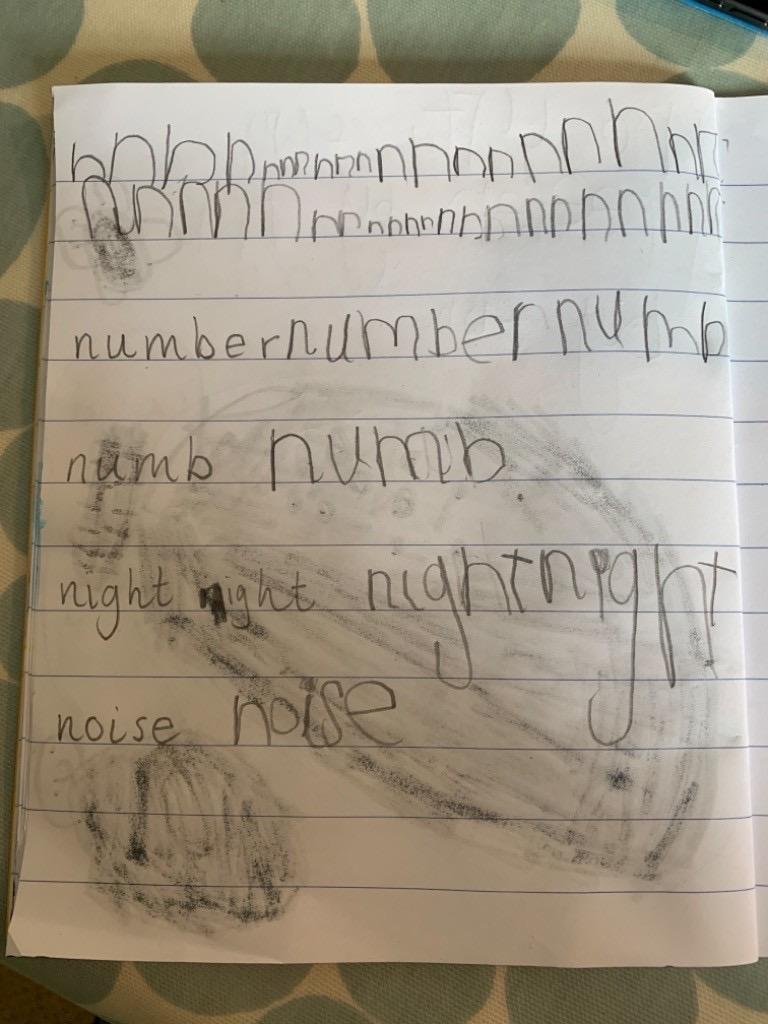 nnnnnnnnnnnnnnnnnnnnn
nnnnnnnnnnnnnnnnnnnnn
numbernumbernumb
numb numb
night night nightnight
noise noise